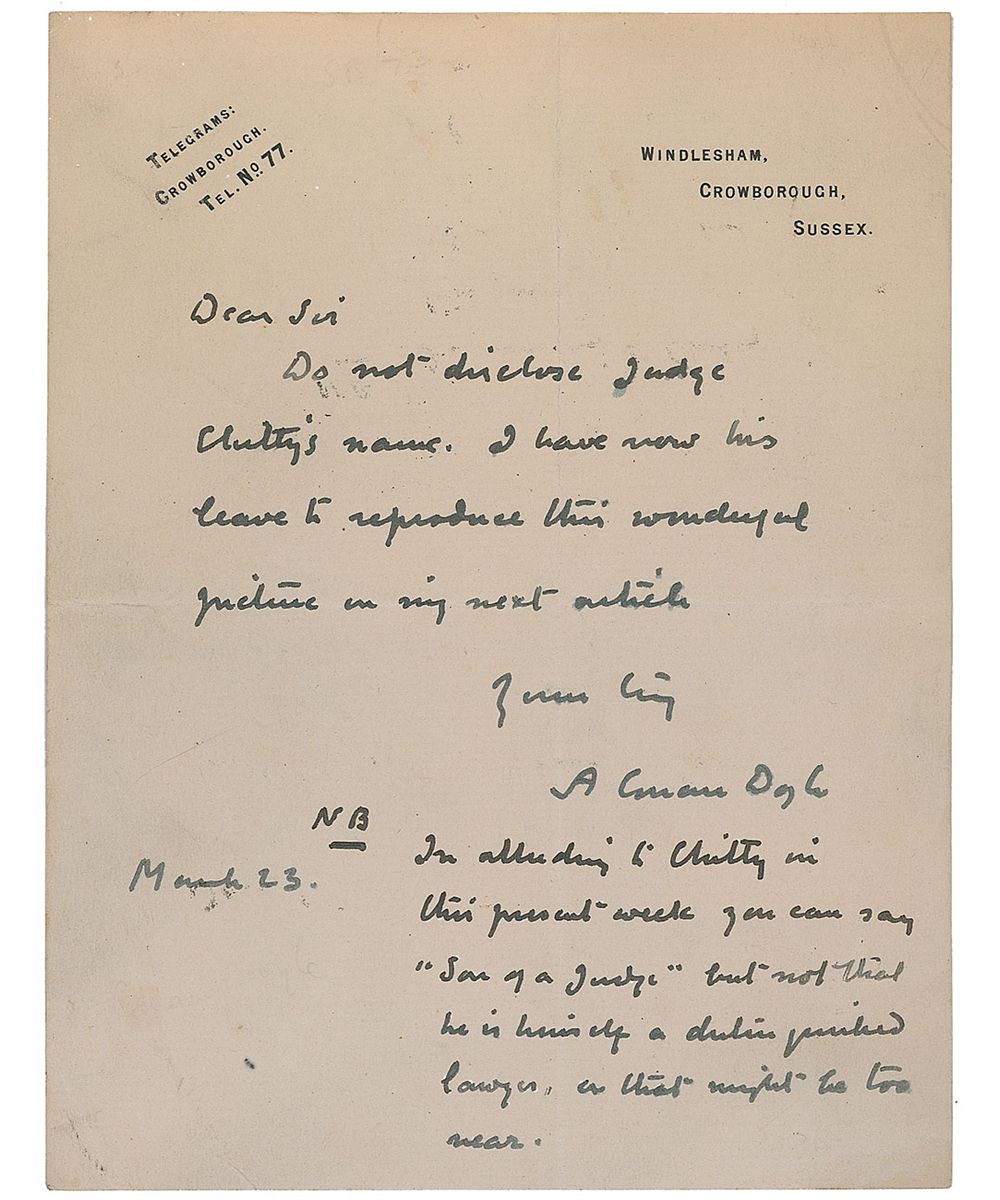 TELEGRAMS:
CROWBOROUGH.
TEL. No. 77.
WINDLESHAM,
CROWBOROUGH,
SUSSEX.
Dear Sir
Do not disclose Judge
Chitty's name. I have now his
leave to reproduce this wonderful
picture in my next article
Yours
A Conan Doyle
NB
March 23.
In alluding to Chitty in
this present week you can say
"Son of a Judge" but not that
he is himself a distinguished
lawyer, as that might be too
near.